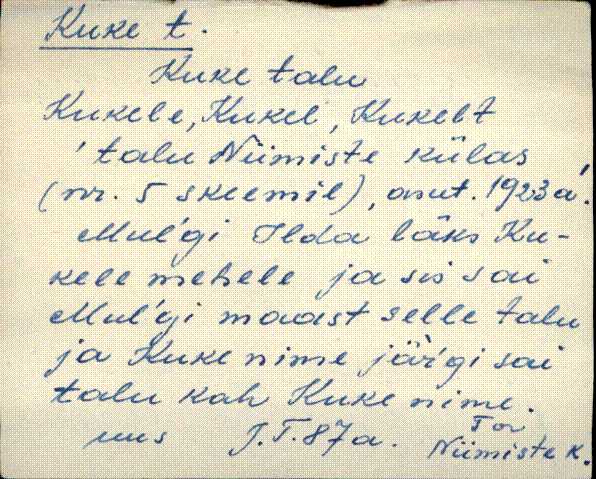 Kuke t.
Kuke talu
Kukele, Kukel, Kukelt
'talu Niimiste külas
(nr. 5 skeemil), asut. 1923 a.'
Mul'gi Ilda läks Ku-
kele mehele ja sis sai
Mul'gi maast selle talu
ja Kuke nime jär'gi sai
talu kah Kuke nime.
uus J.T. 87 a. Tor
Niimiste k.